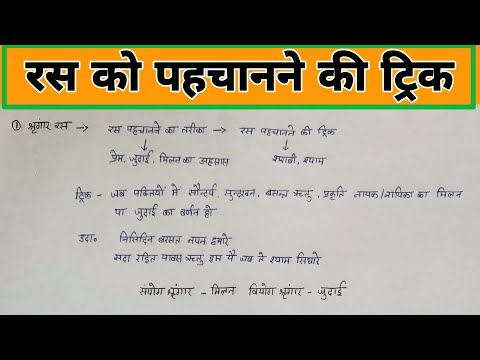 रस को पहचानने की ट्रिक
① श्रृंगार रस → रस पहचानने का तरीका → रस पहचानने की ट्रिक
प्रेम, जुदाई, मिलन का अहसास शराबी, श्याम
ट्रिक - जब पंक्तियों में सौन्दर्य, सुन्दरवन, बसन्त ऋतु, प्रकृति नायक/नायिका का मिलन
या जुदाई का वर्णन हो
उदा० निसिदिन बरसत नयन हमारे
सदा रहित पावस ऋतु हम पै जब ते श्याम सिधारे
संयोग श्रृंगार - मिलन वियोग श्रृंगार - जुदाई